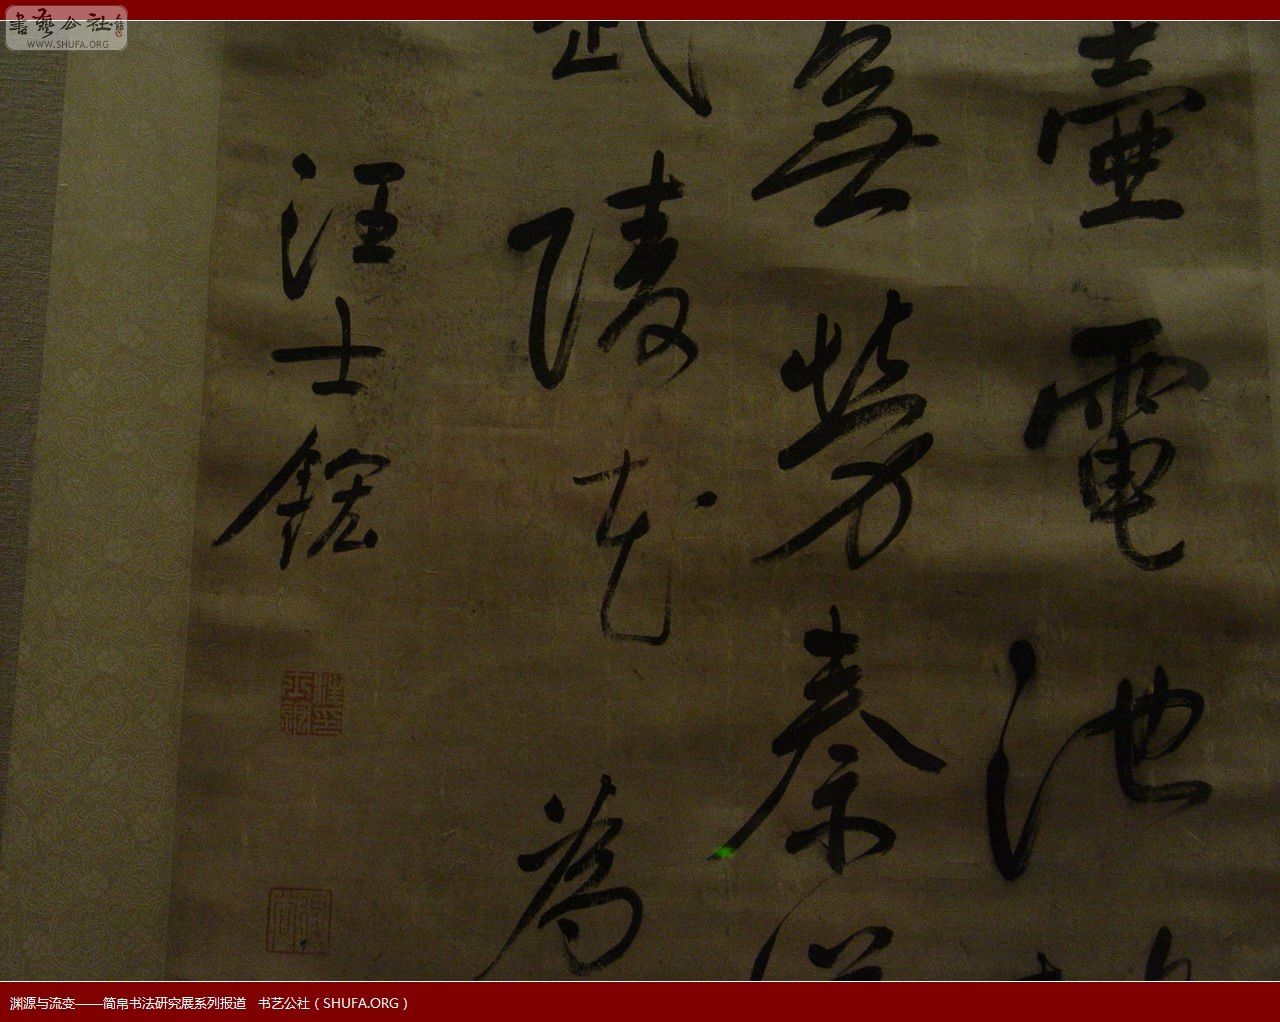 书艺公社
WWW.SHUFA.ORG
壶電池
無劳秦
武陵花為
汪士鋐
渊源与流变——简帛书法研究展系列报道 书艺公社（SHUFA.ORG）